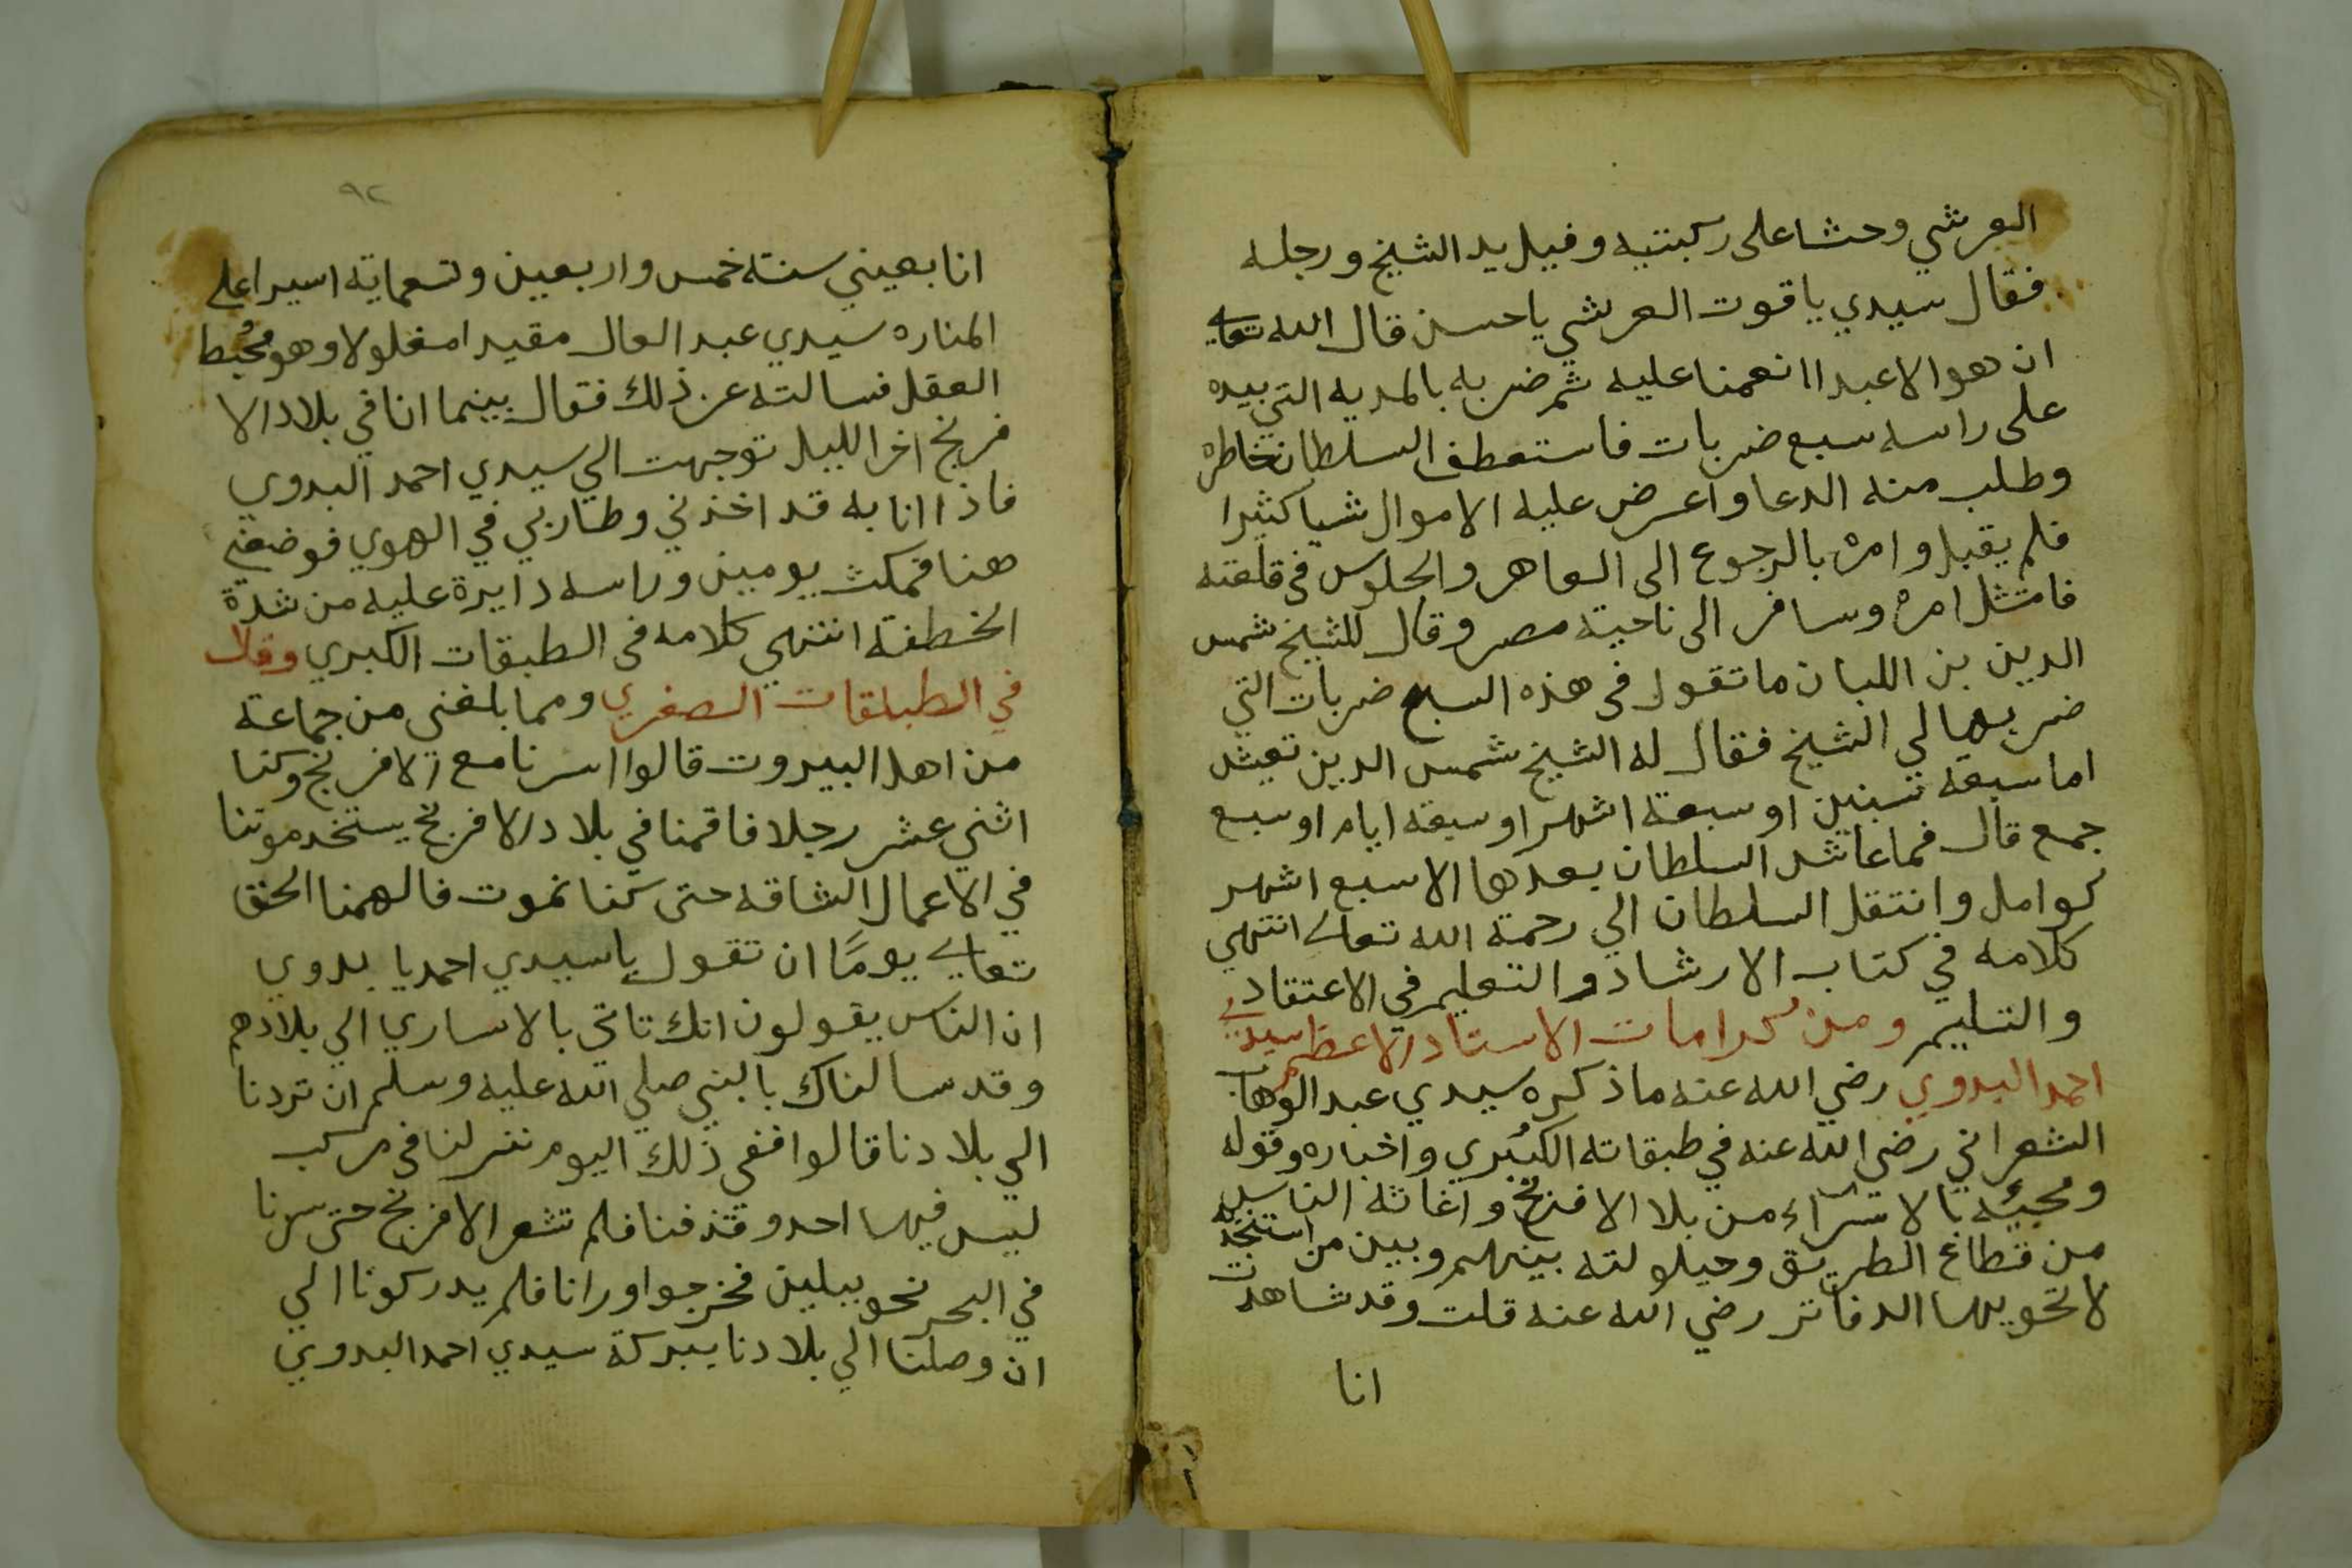 العرشي وحثا على ركبتيه وقبل يد الشيخ ورجله
فقال سيدي ياقوت العرشي ياحسن قال الله تعالى
ان هو الا عبدا انعمنا عليه ثم ضربه بالمديه التي بيده
على راسه سبع ضربات فاستعطف السلطان بخاطره
وطلب منه الدعا واعرض عليه الاموال شياكثيرا
فلم يقبل وامره بالرجوع الى العاهر والجلوس فى قلعته
فامتثل امره وسافر الى ناحية مصر وقال للشيخ شمس
الدين بن اللبان ما تقول فى هذه السبع ضربات التي
ضربها لي الشيخ فقال له الشيخ شمس الدين تعيش
اما سبعة سنين او سبعة اشهر او سبعة ايام او سبع
جمع قال فما عاش السلطان بعدها الا سبع اشهر
كوامل وانتقل السلطان الي رحمة الله تعالى انتهي
كلامه في كتاب الارشاد والتعليم في الاعتقاد
والتسليم ومن كرامات الاستاد الاعظم سيدي
احمد البدوي رضي الله عنه ما ذكره سيدي عبد الوهاب
الشعراني رضي الله عنه في طبقاته الكبري واخباره وقوله
ومجيئه بالاسراء من بلا الافرنج واغاثة الناس
من قطاع الطريق وحيلولته بينهم وبين من استنجد
لا تحويها الدفاتر رضي الله عنه قلت وقد شاهدت
انا
٩٢
انا بعيني سنة خمس واربعين وتسعماية اسيرا على
المناره سيدي عبد العال مقيدا مغلولا وهو مخبط
العقل فسالته عن ذلك فقال بينما انا في بلاد الا
فرنج اخر الليل توجهت الي سيدي احمد البدوي
فاذا انا به قد اخذني وطار بي في الهوي فوضعني
هنا فمكث يومين وراسه دايرة عليه من شدة
الخطفة انتهي كلامه فى الطبقات الكبري وقال
في الطبلقات الصغري ومما بلغنى من جماعة
من اهل البيروت قالوا اسرنا مع الافرنج وكنا
اثني عشر رجلا فاقمنا في بلاد الافرنج يستخدموننا
في الاعمال الشاقه حتى كنا نموت فالهمنا الحق
تعالى يومًا ان تقول ياسيدي احمد يا بدوي
ان الناس يقولون انك تاتي بالاساري الي بلادهم
وقد سالناك بالنبي صلي الله عليه وسلم ان تردنا
الي بلادنا قالوا ففي ذلك اليوم نزلنا في مركب
ليس فيها احد وقذفنا فلم تشعر الافرنج حتى سرنا
في البحر نحو ميلين فخرجوا ورانا فلم يدركونا الي
ان وصلنا الي بلادنا ببركة سيدي احمد البدوي